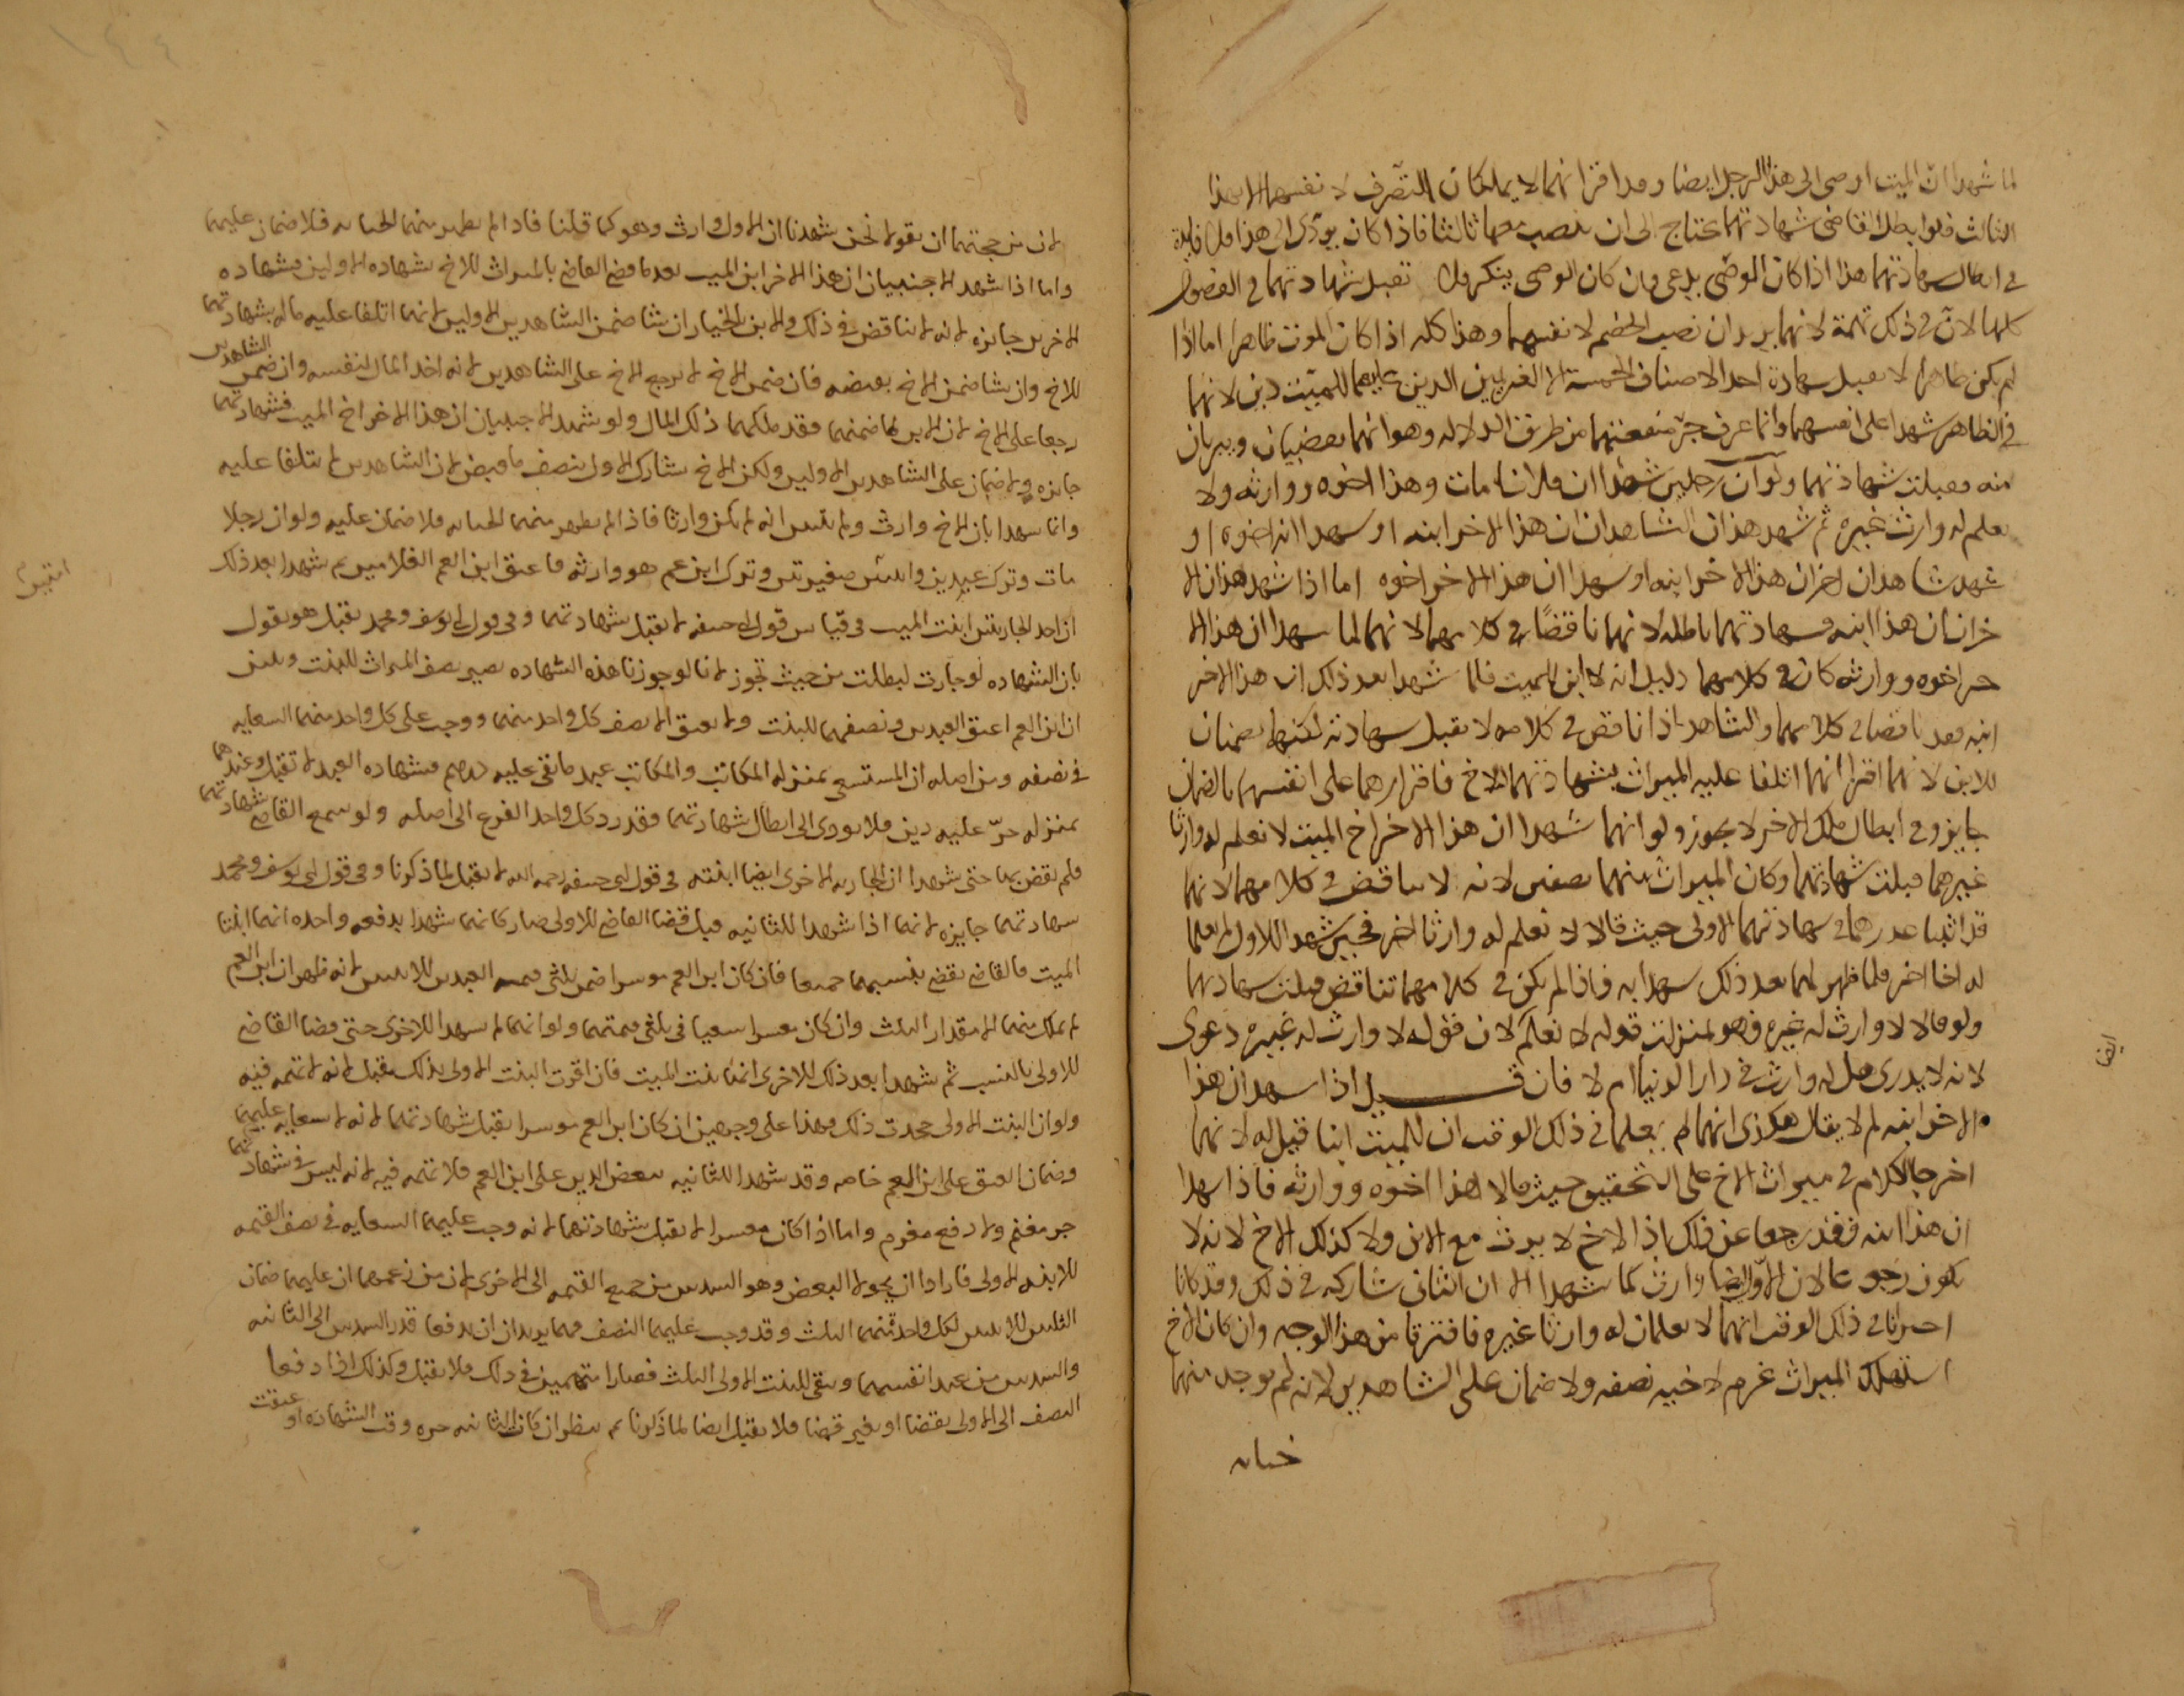 لما شهدا ان الميت اوصى الى هذا الرجل ايضا وقد اقرا انهما لا يملكان التصرف لانفسهما الا بهذا
الثالث فلو ابطل القاضى شهادتهما يحتاج الى ان ينصب معهما ثالثا فاذا كان يؤدى الى هذا فلا فايدة
فى ابطال شهادتهما هذا اذا كان الموصى يدعى وان كان الوصى ينكر تقبل شهادتهما فى الفصول
كلها لان فى ذلك تهمة لانهما يريدان نصب الخصم لانفسهما وهذا كله اذا كان الموت ظاهرا اما اذا
لم يكن ظاهرا لا تقبل شهادة احد الاصناف الخمسة الا الغريمين الذين عليهما للميت دين لانهما
فى الظاهر شهدا على انفسهما وانما عرف جر منفعتهما من طريق الدلاله وهو انهما يقضيان ويبريان
منه فقبلت شهادتهما ولو ان رجلين شهدا ان فلانا مات وهذا اخوه ووارثه ولا
يعلم له وارث غيره ثم شهد هذان الشاهدان ان هذا الاخر ابنه او شهدا انه اخوه او
شهد شاهدان اخران ان هذا الاخر ابنه او شهدا ان هذا الاخر اخوه اما اذا شهد هذان الا
خران ان هذا ابنه فشهادتهما باطله لانهما ناقضا فى كلامهما لانهما لما شهدا ان هذا الا
خر اخوه ووارثه كان فى كلامهما دليل انه لا ابن للميت فلما شهدا بعد ذلك ان هذا الاخر
ابنه فقد ناقضا فى كلامهما والشاهد اذا ناقض فى كلامه لا تقبل شهادته لكنهما يضمنان
للابن لانهما اقرا انهما اتلفا عليه الميراث بشهادتهما للاخ فاقرارهما على انفسهما بالضمان
جايز وفى ابطال ملك الاخر لا يجوز ولو انهما شهدا ان هذا الاخر اخ الميت لا نعلم له وارثا
غيرهما قبلت شهادتهما وكان الميراث بينهما نصفين لانه لا تناقض فى كلامهما لانهما
قد اثبتا عذرهما فى شهادتهما الاولى حيث قالا لا نعلم له وارثا اخر فحين شهدا للاول لم يعلما
له اخا اخر فلما ظهر لهما بعد ذلك شهدا به فاذا لم يكن فى كلامهما تناقض قبلت شهادتهما
ولو قالا لا وارث له غيره فهو بمنزلة قوله لا نعلم لان قوله لا وارث له غيره دعوى
لانه لا يدرى هل له وارث فى دار الدنيا ام لا فان قيل اذا شهد ان هذا
الاخر ابنه لم لا يقال هكذى انهما لم يعلما فى ذلك الوقت ان للميت ابنا قيل له لانهما
اخرجا الكلام فى ميراث الاخ على التحقيق حيث قالا هذا اخوه ووارثه فاذا شهدا
ان هذا ابنه فقد رجعا عن ذلك اذ الاخ لا يرث مع الابن ولا كذلك الاخ لانه لا
يكون رجوعا لان الاول ايضا وارث كما شهدا الا ان الثانى شاركه فى ذلك وقد كانا
احترازا فى ذلك الوقت انهما لا يعلمان له وارثا غيره فافترقا من هذا الوجه وان كان الاخ
استهلك الميراث غرم لاخيه نصفه ولا ضمان على الشاهدين لانه لم يوجد منهما
خيانه
ايضا
لان من حجتهما ان يقولا نحن شهدنا ان الاول وارث وهو كما قلنا فاذا لم يظهر منهما الخيانه فلا ضمان عليهما
واما اذا شهد الاجنبيان ان هذا الاخر ابن الميت بعد ما قضى القاضى بالميراث للاخ بشهاده الاولين فشهاده
الاخرين جايزه لانه لا تناقض فى ذلك والابن بالخيار ان شا ضمن الشاهدين الاولين لانهما اتلفا عليه ماله بشهادتهما
للاخ وان شا ضمن الاخ بقبضه فان ضمن الاخ لا يرجع الاخ على الشاهدين لانه اخذ المال لنفسه وان ضمن الشاهدين
رجعا على الاخ لان الابن لما ضمنهما فقد ملكهما ذلك المال ولو شهد الاجنبيان ان هذا الاخر اخ الميت فشهادتهما
جايزه ولا ضمان على الشاهدين الاولين ولكن الاخ يشارك الاول بنصف ما قبض لان الشاهدين لم يتلفا عليه
وانما شهدا بان الاخ وارث ولم يتبين انه لم يكن وارثا فاذا لم يظهر منهما الخيانه فلا ضمان عليه ولو ان رجلا
مات وترك عبدين وابنتين صغيرتين وترك ابن عم هو وارثه فاعتق ابن العم الغلامين ثم شهدا بعد ذلك
ان احد الجاريتين ابنت الميت فى قياس قول ابى حنيفه لا تقبل شهادتهما وفى قول ابى يوسف ومحمد تقبل هو يقول
بان الشهاده لو جازت لبطلت من حيث تجوز لانا لو جوزنا هذه الشهاده يصير نصف الميراث للبنت وتبين
ان ابن العم اعتق العبدين ونصفهما للبنت ولا يعتق الا نصف كل واحد منهما ووجب على كل واحد منهما السعايه
فى نصفه ومن اصله ان المستسعى بمنزله المكاتب والمكاتب عبد ما بقى عليه درهم فشهاده العبد لا تقبل وعندهما
بمنزله حر عليه دين فلا يودى الى ابطال شهادتهما فقد رد كل واحد الفرع الى اصله ولو سمع القاضى شهادتهما
فلم يقض بها حتى شهدا ان الجاريه الاخرى ايضا ابنته فى قول ابى حنيفه رحمه الله لا تقبل لما ذكرنا وفى قول ابى يوسف ومحمد
شهادتهما جايزه لانهما اذا شهدا للثانيه قبل قضا القاضى للاولى صار كانهما شهدا بدفعه واحده انهما ابنتا
الميت فالقاضى يقضى بنسبهما جميعا فان كان ابن العم موسرا ضمن ثلثى قيمه العبدين للابنتين لانه ظهر ان ابن العم
لم يملك منهما الا مقدار الثلث وان كان معسرا سعيا فى ثلثى قيمتهما ولو انهما لم يشهدا للاخرى حتى قضا القاضى
للاولى بالنسب ثم شهدا بعد ذلك للاخرى انها بنت الميت فان اقرت البنت الاولى بذلك تقبل لانه لا تهمه فيه
ولو ان البنت الاولى جحدت ذلك فهذا على وجهين ان كان ابن العم موسرا تقبل شهادتهما لانه لا سعايه عليهما
وضمان العتق على ابن العم خاصه وقد شهدا للثانيه ببعض الدين على ابن العم فلا تهمه فيه لانه ليس فى شهادتهما
جر مغنم ولا دفع مغرم واما اذا كان معسرا لا تقبل شهادتهما لانه وجب عليهما السعايه فى نصف القيمه
للابنه الاولى فارادا ان يحولا البعض وهو السدس من جميع القيمه الى الاخرى لان من زعمهما ان عليهما ضمان
الثلثين للابنتين لكل واحد منهما الثلث وقد وجب عليهما النصف فهما يريدان ان يدفعا قدر السدس الى الثانيه
والسدس من عند انفسهما ويبقى للبنت الاولى الثلث فصارا متهمين فى ذلك فلا تقبل وكذلك اذا دفعا
النصف الى الاولى بقضا او بغير قضا فلا تقبل ايضا لما ذكرنا ثم ينظر ان كانت الثانيه حره وقت الشهاده او عتقت